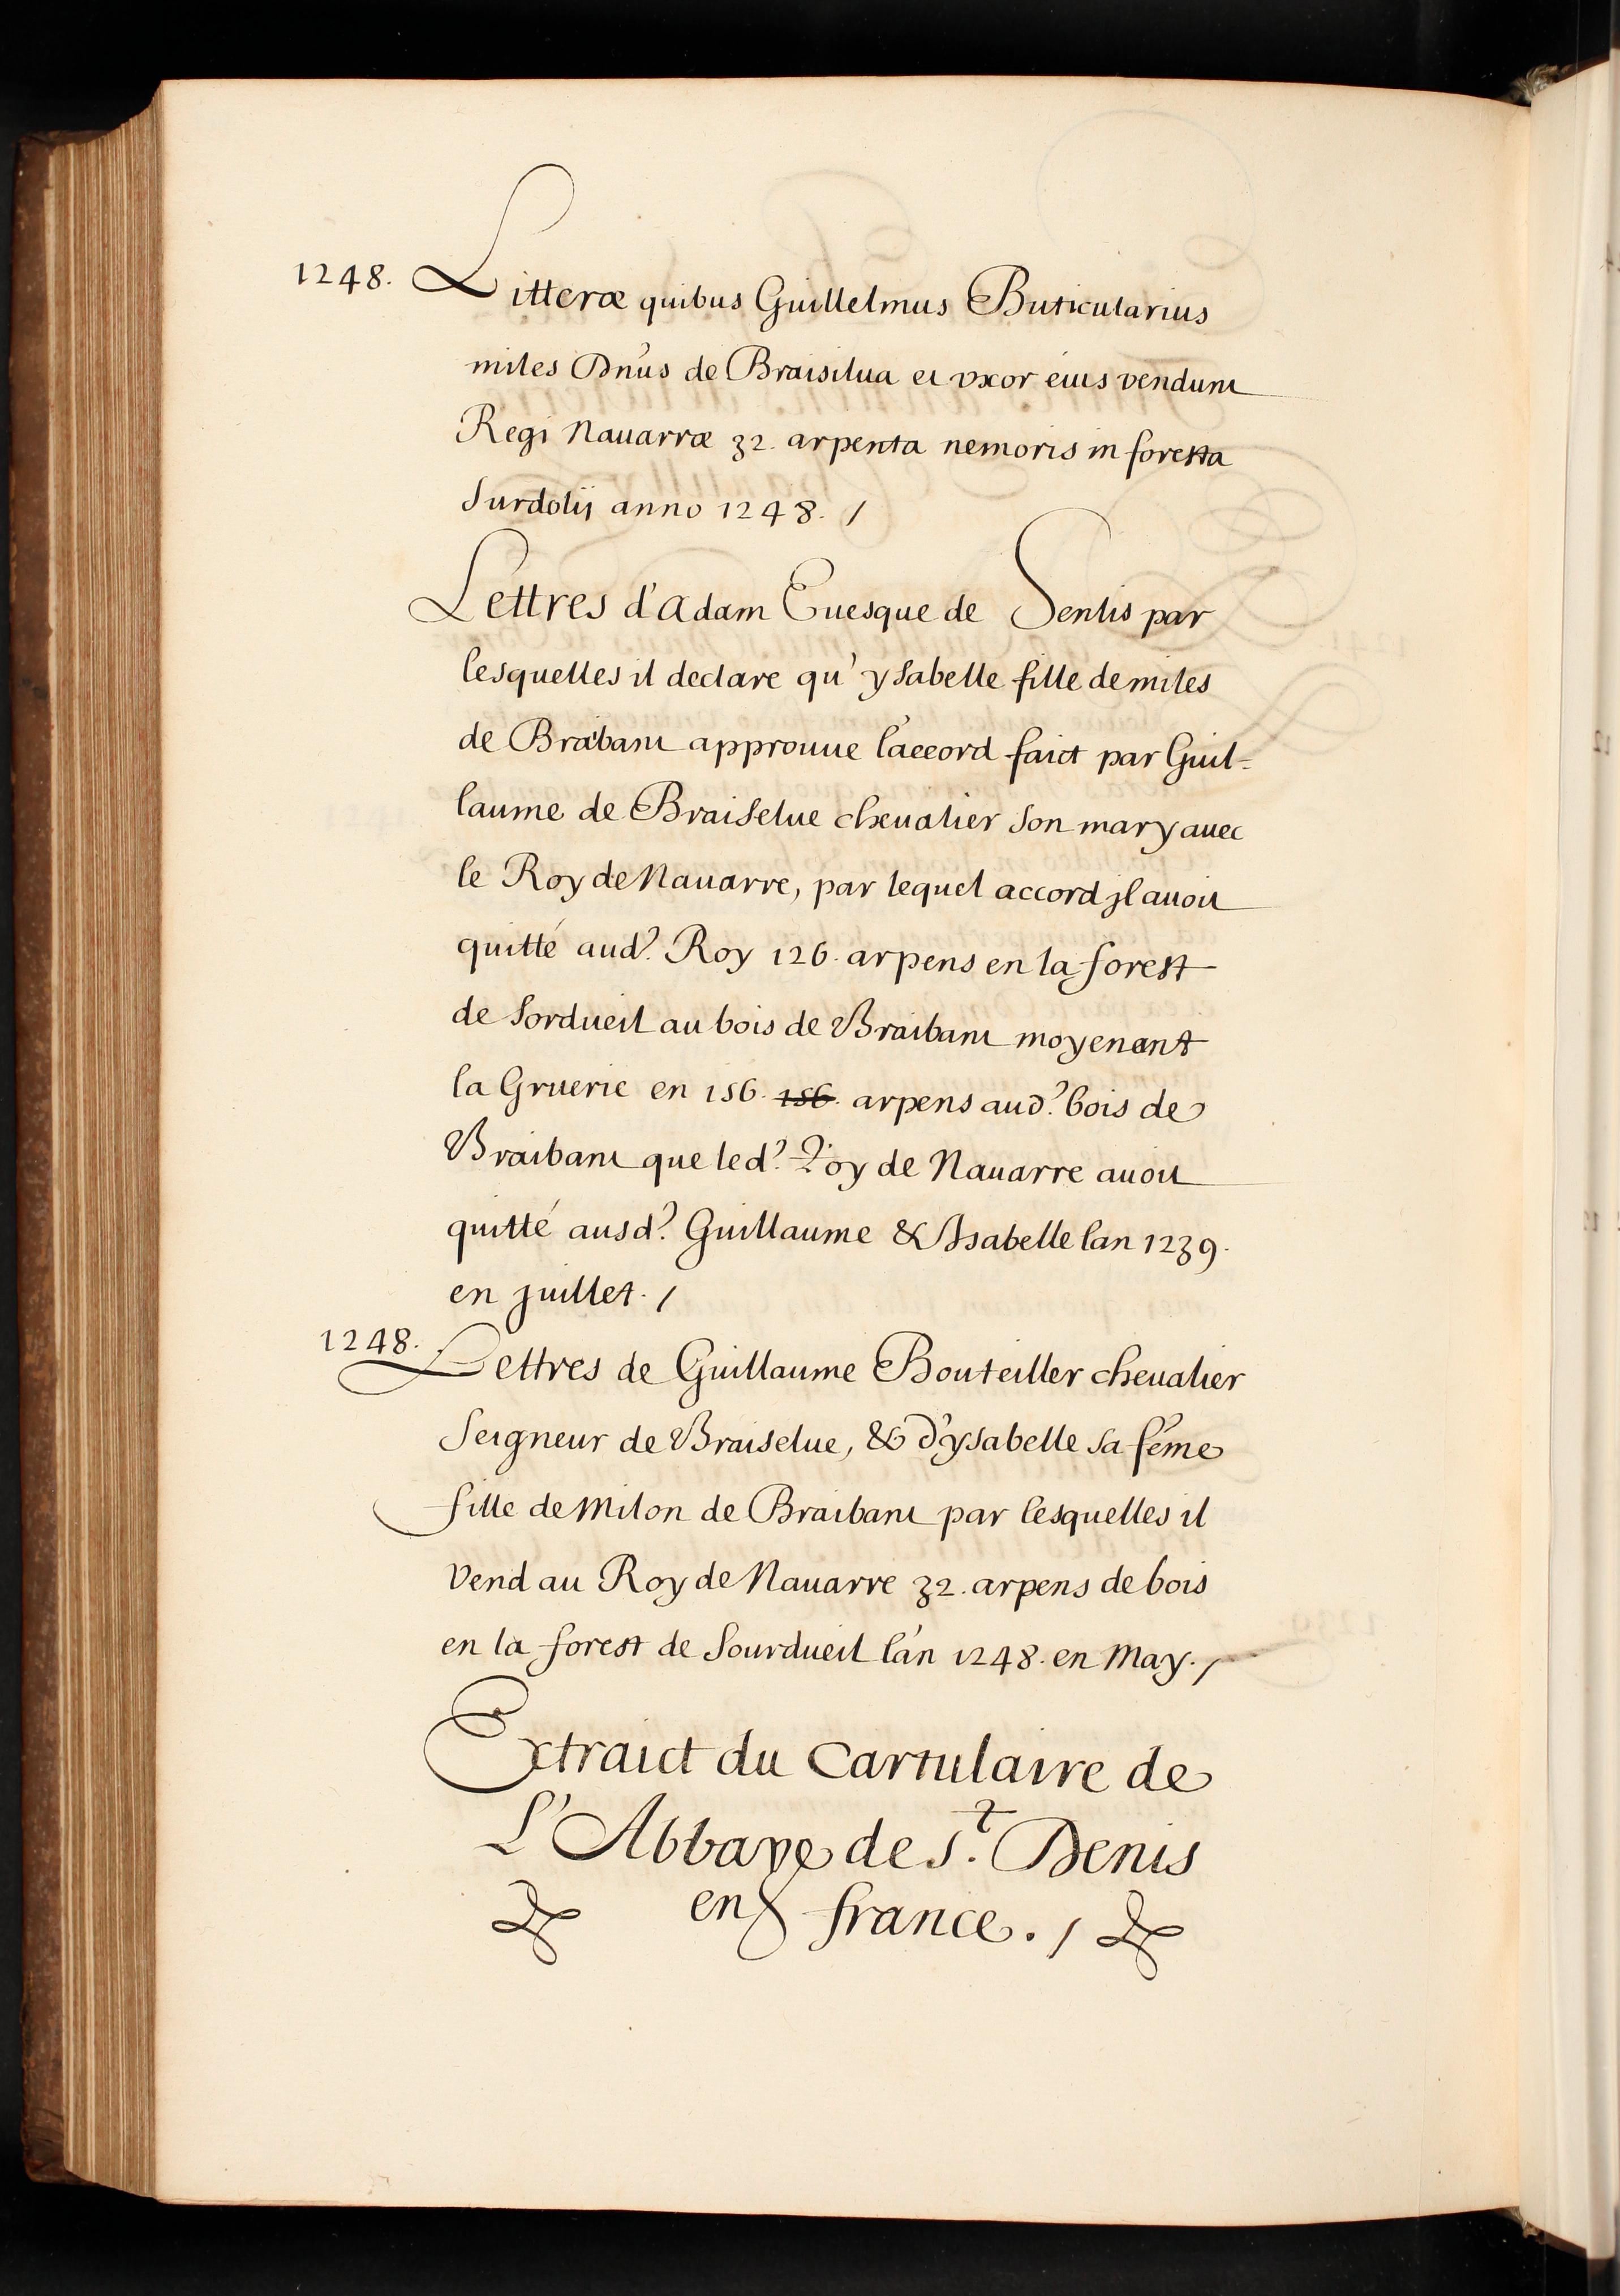 1248. Litteræ quibus Guillelmus Buticularius
miles Dn̄us de Braisilua et vxor eius vendunt
Regi Nauarræ 32. arpenta nemoris in foresta
Surdolij anno 1248. /
Lettres d'Adam Euesque de Senlis par
lesquelles il declare qu'ysabelle fille de miles
de Braibant approuue l'accord faict par Guil=
laume de Braiselue cheualier son mary auec
le Roy de Nauarre, par lequel accord jl auoit
quitté aud? Roy 126. arpens en la forest
de Sordueil au bois de Braibant moyenant
la Gruerie en 156. 156. arpens aud? bois de
Braibant que led? Roy de Nauarre auoit
quitté ausd? Guillaume & Isabelle lan 1239.
en juillet. /
1248. Lettres de Guillaume Bouteiller cheualier
Seigneur de Braiselue, & d'ysabelle sa fēme
fille de Milon de Braibant par lesquelles il
vend au Roy de Nauarre 32. arpens de bois
en la forest de Sourdueil l'an 1248. en May. /
Extraict du Cartulaire de
L'Abbaye de S.t Denis
en france. /